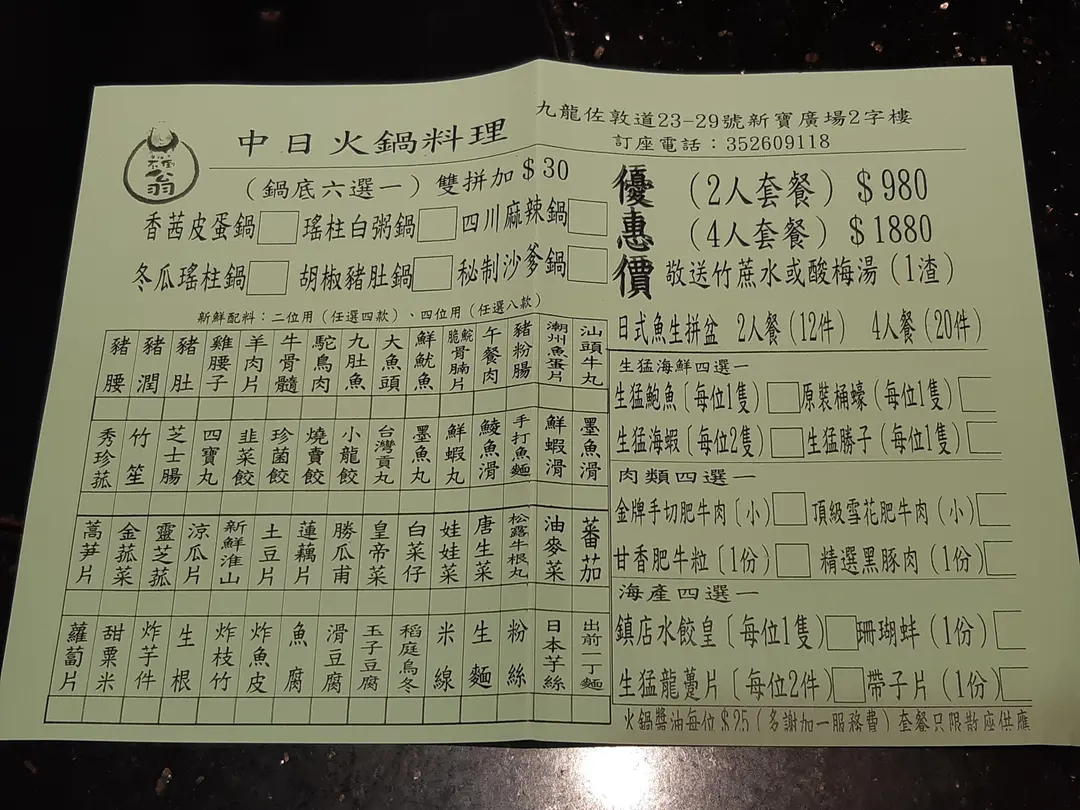 翁
中日火鍋料理
九龍佐敦道23-29號新寶廣場2字樓
訂座電話：352609118
（鍋底六選一）雙拼加＄30
香茜皮蛋鍋 瑤柱白粥鍋 四川麻辣鍋
冬瓜瑤柱鍋 胡椒豬肚鍋 秘制沙爹鍋
新鮮配料：二位用（任選四款）、四位用（任選八款）
豬腰 豬潤 豬肚 雞腰子 羊肉片 牛骨髓 鴕鳥肉 九肚魚 大魚頭 鮮魷魚 脆骨腩片 午餐肉 豬粉腸 潮州魚蛋片 汕頭牛丸
秀珍菰 竹笙 芝士腸 四寶丸 韭菜餃 珍菌餃 燒賣餃 小龍餃 台灣貢丸 墨魚丸 鮮蝦丸 鯪魚滑 手打魚麵 鮮蝦滑 墨魚滑
萵笋片 金菰菜 靈芝菰 涼瓜片 新鮮淮山 土豆片 蓮藕片 勝瓜甫 皇帝菜 白菜仔 娃娃菜 唐生菜 松露牛根丸 油麥菜 蕃茄
蘿蔔片 甜粟米 炸芋件 生根 炸枝竹 炸魚皮 魚腐 滑豆腐 玉子豆腐 稻庭烏冬 米線 生麵 粉絲 日本芋絲 出前一丁麵
優惠價
（2人套餐）＄980
（4人套餐）＄1880
敬送竹蔗水或酸梅湯（1渣）
日式魚生拼盆 2人餐（12件） 4人餐（20件）
生猛海鮮四選一
生猛鮑魚〔每位1隻〕 原裝桶蠔（每位1隻）
生猛海蝦〔每位2隻〕 生猛勝子（每位1隻）
肉類四選一
金牌手切肥牛肉〔小〕 頂級雪花肥牛肉（小）
甘香肥牛粒〔1份〕 精選黑豚肉（1份）
海產四選一
鎮店水餃皇〔每位1隻〕 珊瑚蚌（1份）
生猛龍躉片〔每位2件〕 帶子片（1份）
火鍋醬油每位＄25（多謝加一服務費）套餐只限散座供應